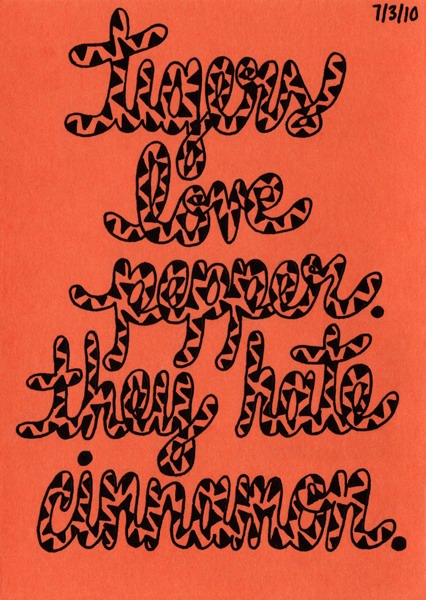 7/3/10
tigers
love
pepper.
they hate
cinnamon.